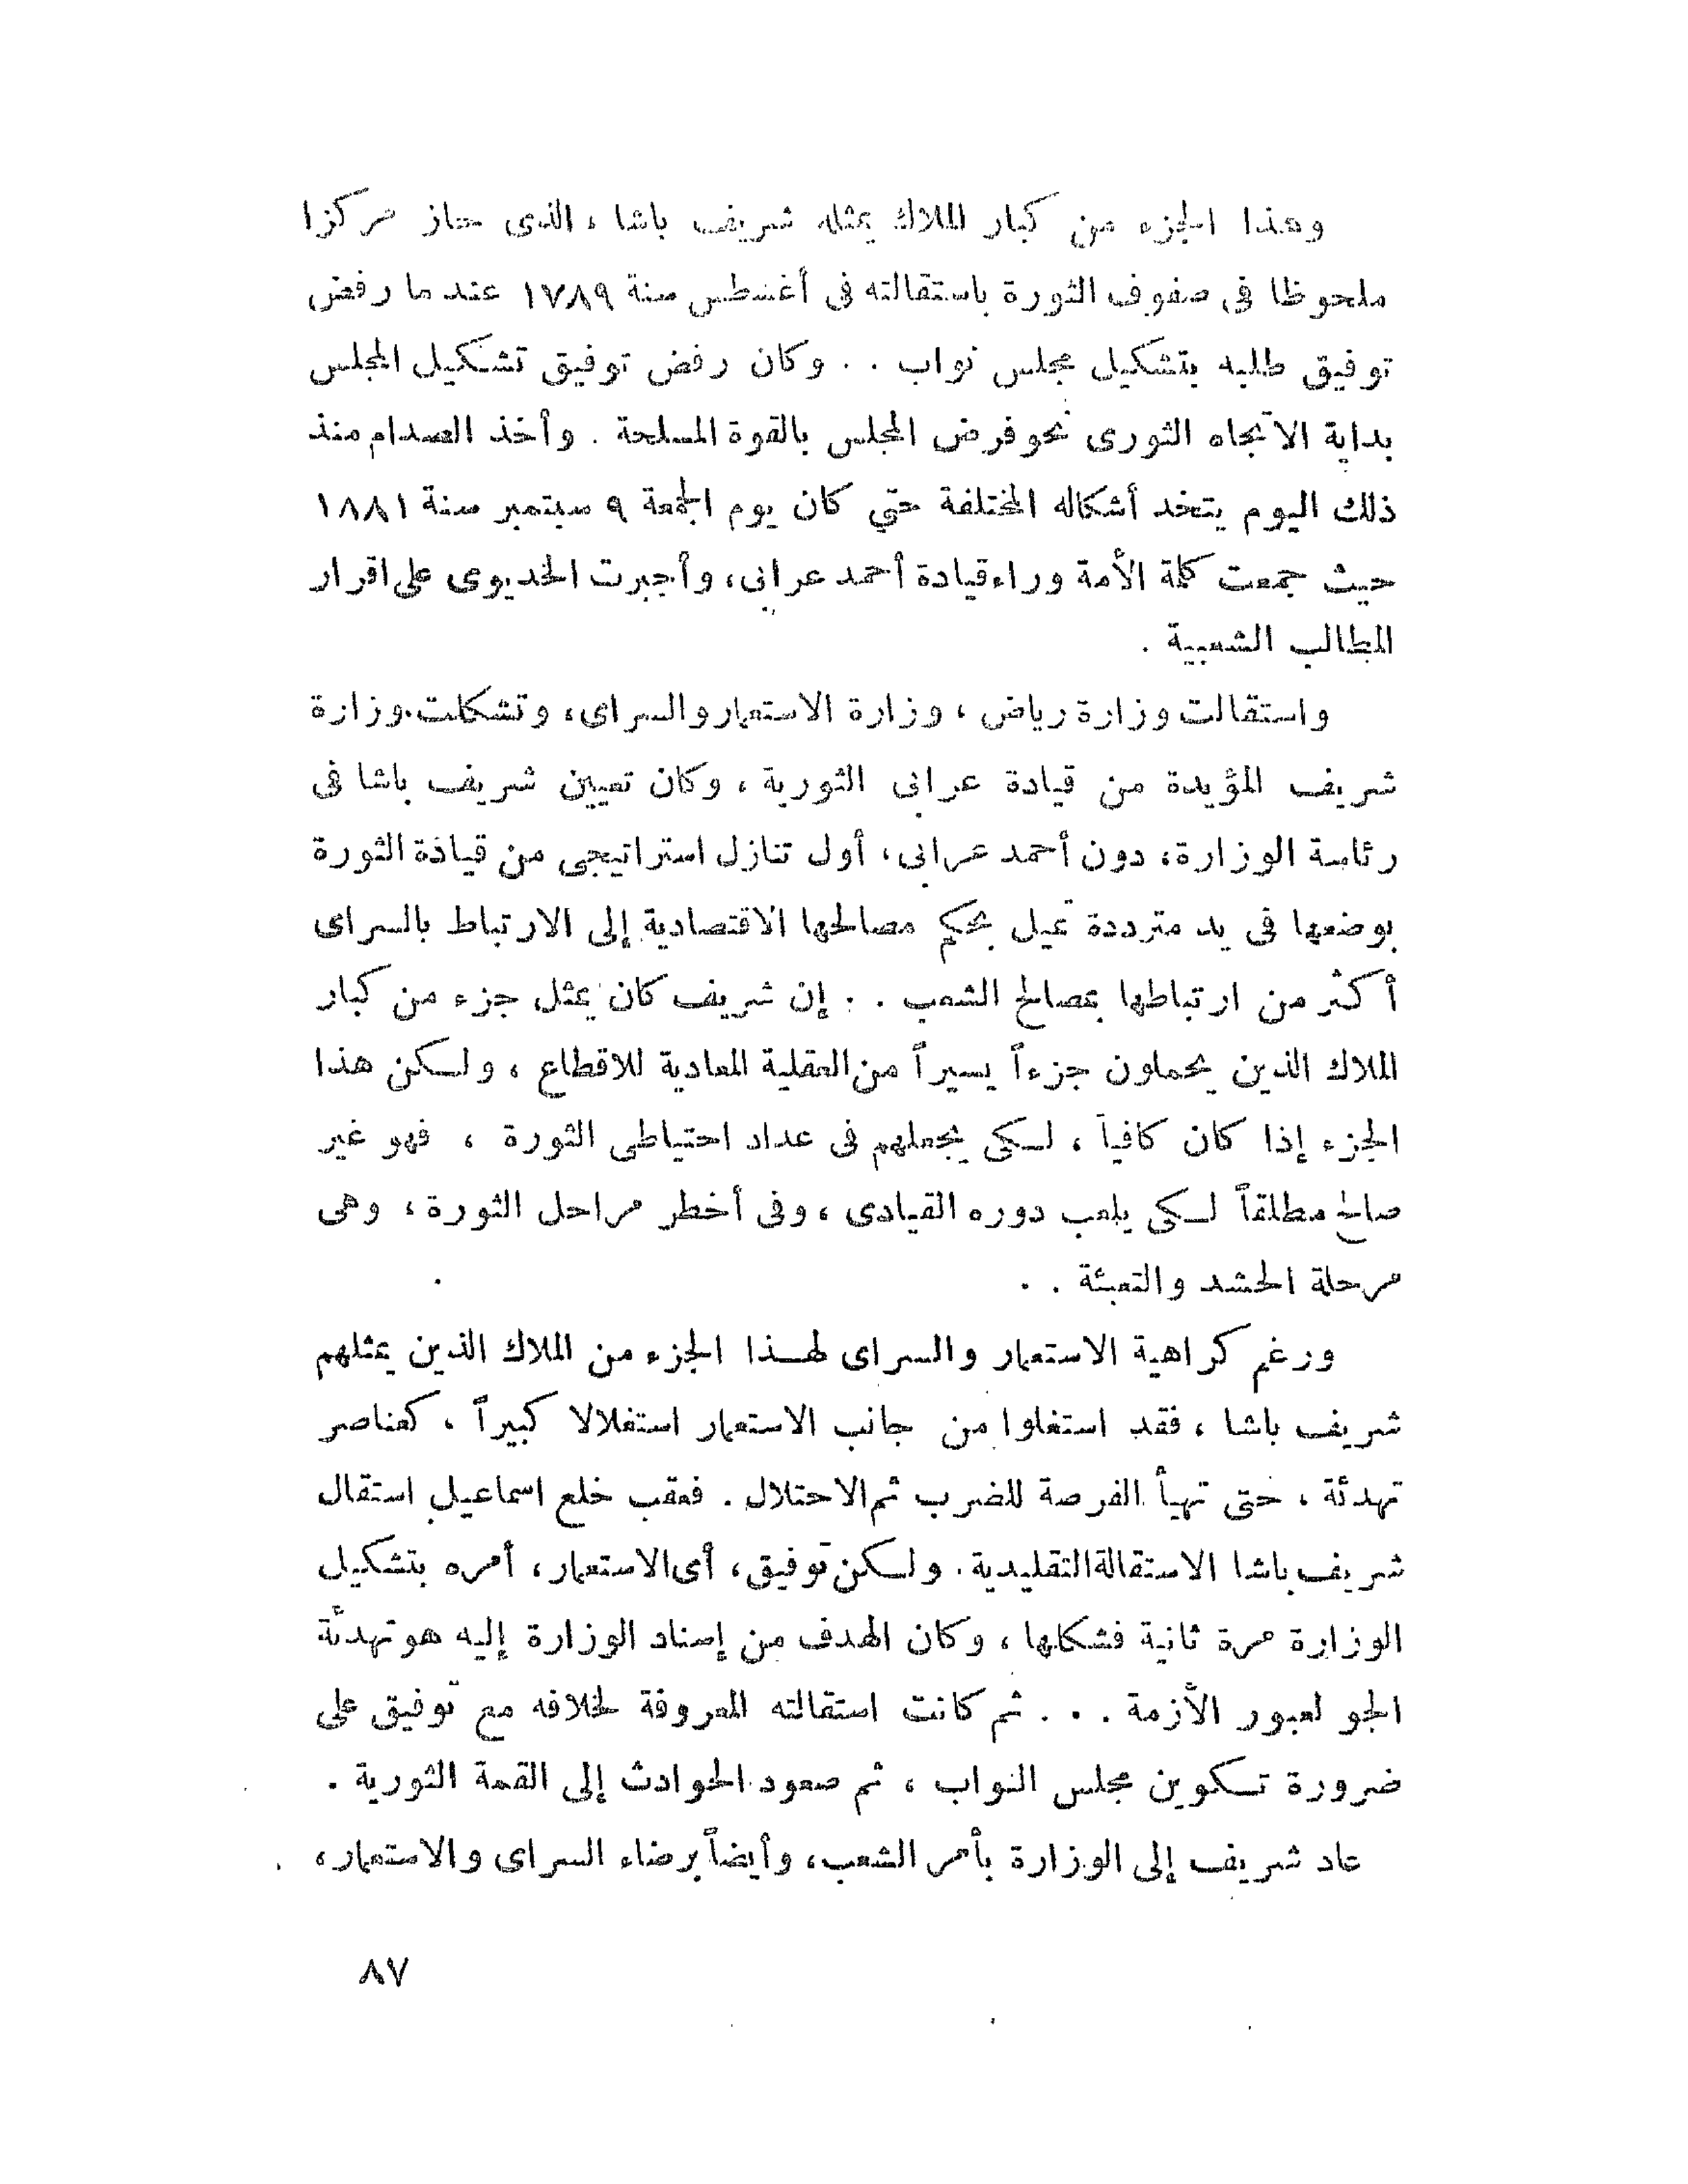 وهذا الجزء من كبار الملاك يمثله شريف باشا ، الذى حاز مركزا
ملحوظا فى صفوف الثورة باستقالته فى أغسطس سنة ١٧٨٩ عند ما رفض
توفيق طلبه بتشكيل مجلس نواب . . وكان رفض توفيق تشكيل المجلس
بداية الاتجاه الثورى نحو فرض المجلس بالقوة المسلحة . وأخذ الصدام منذ
ذلك اليوم يتخد أشكاله المختلفة حتي كان يوم الجمعة ٩ سبتمبر سنة ١٨٨١
حيث جمعت كلمة الأمة وراء قيادة أحمد عرابى، وأجبرت الخديوى على اقرار
المطالب الشعبية .
واستقالت وزارة رياض ، وزارة الاستعمار والسراى، وتشكلت وزارة
شريف المؤيدة من قيادة عرابى الثورية ، وكان تعيين شريف باشا فى
رئاسة الوزارة، دون أحمد عرابى، أول تنازل استراتيجى من قيادة الثورة
بوضعها فى يد مترددة تميل بحكم مصالحها الاقتصادية إلى الارتباط بالسراى
أكثر من ارتباطها بمصالح الشعب . . إن شريف كان يمثل جزء من كبار
الملاك الذين يحملون جزءاً يسيراً من العقلية المعادية للاقطاع ، ولكن هذا
الجزء إذا كان كافياً ، لكى يجعلهم فى عداد احتياطى الثورة ، فهو غير
صالح مطلقاً لكى يلعب دوره القيادى ، وفى أخطر مراحل الثورة ، وهى
مرحلة الحشد والتعبئة . .
ورغم كراهية الاستعمار والسراى لهذا الجزء من الملاك الذين يمثلهم
شريف باشا ، فقد استغلوا من جانب الاستعمار استغلالا كبيراً ، كعناصر
تهدئة ، حتى تهيأ الفرصة للضرب ثم الاحتلال . فعقب خلع اسماعيل استقال
شريف باشا الاستقالة التقليدية . ولكن توفيق، أى الاستعمار، أمره بتشكيل
الوزارة مرة ثانية فشكلها ، وكان الهدف من إسناد الوزارة إليه هو تهدئة
الجو لعبور الأزمة . . . ثم كانت استقالته المعروفة لخلافه مع توفيق على
ضرورة تكوين مجلس النواب ، ثم صعود الحوادث إلى القمة الثورية .
عاد شريف إلى الوزارة بأمر الشعب، وأيضاً برضاء السراى والاستعمار،
٨٧